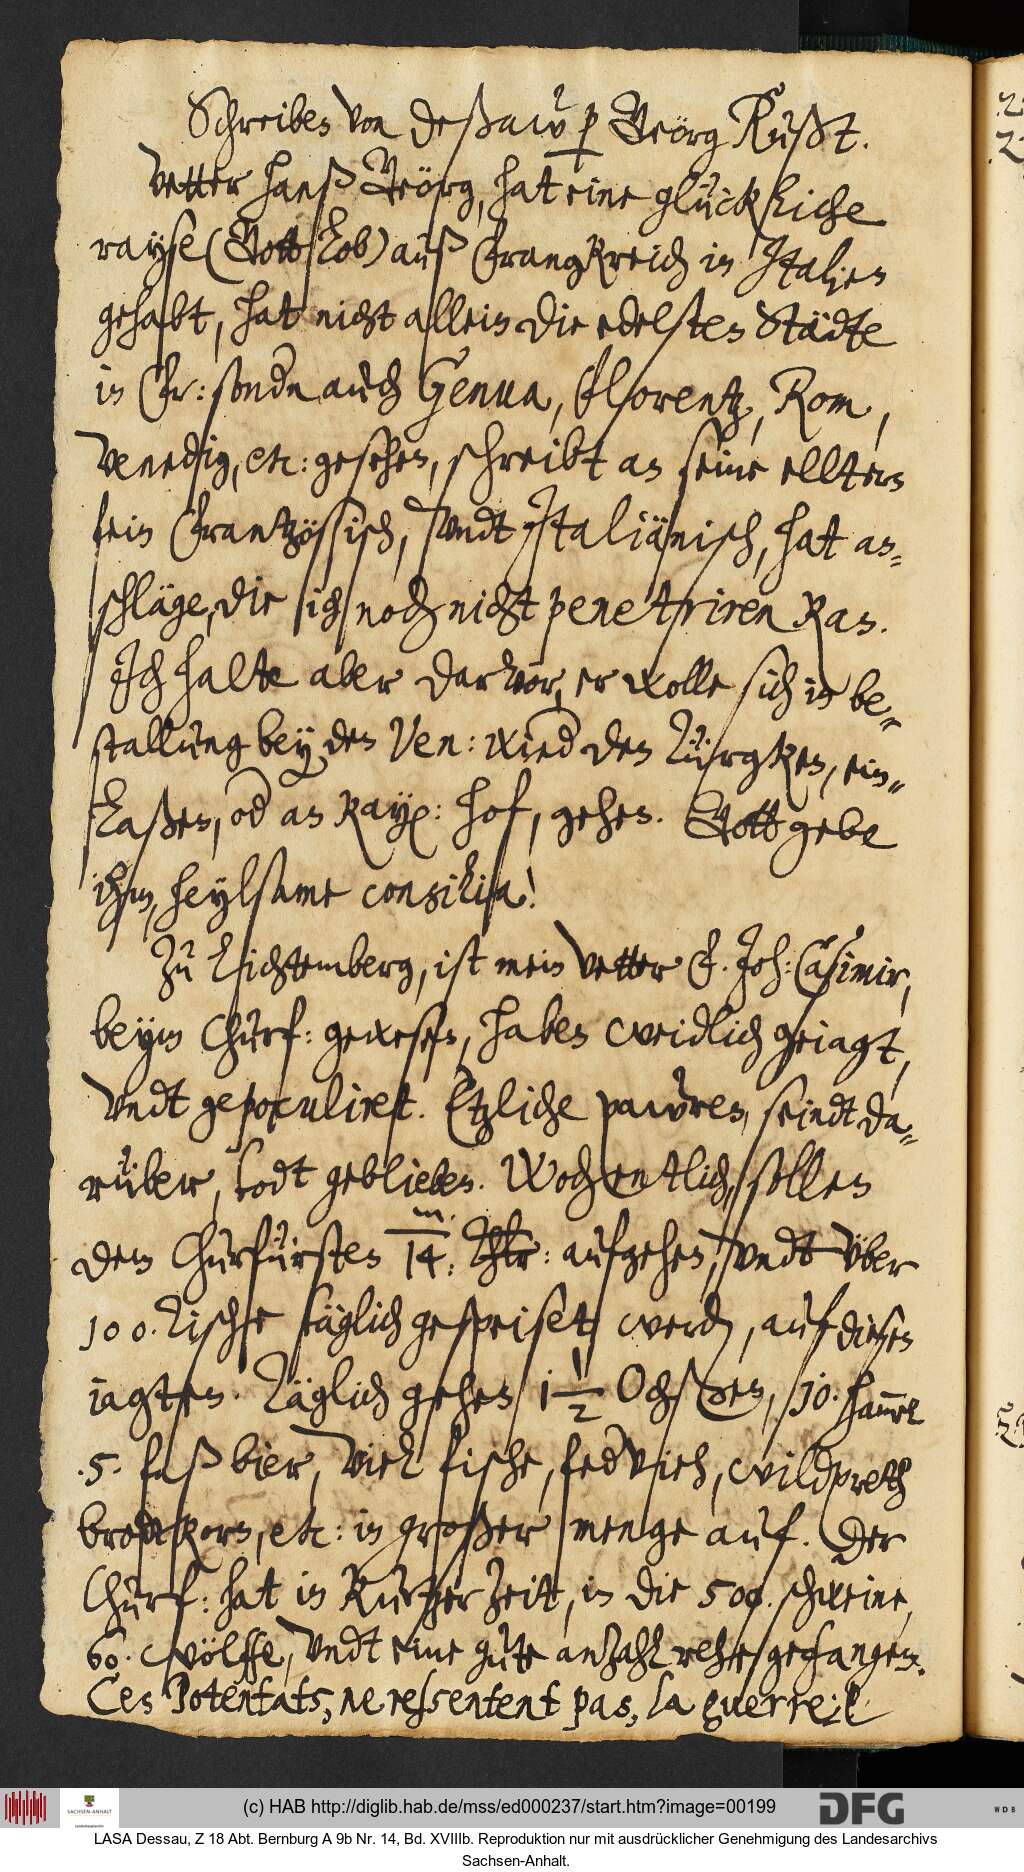 Schreiben von Deßaw p Geörg Kußt.
Vetter Hanß Geörg, hat eine glückliche
rayse (Gott lob) auß Frangkreich in Italien
gehabt, hat nicht allein die edelsten Städte
in Fr: sondn auch Genua, Florentz, Rom,
Venedig, etc: gesehen, schreibt an seine ellltern
fein Frantzössisch, vndt Italiänisch, hat an-
schläge, die ich noch nicht penetriren kan.
Ich halte aber darvor, er wolle sich in be-
stallung bey den Ven: wied den Türgken, ein-
laßen, od an Kay: hof, gehen. Gott gebe
ihm, heylsame consilia!
Zu Lichtemberg, ist mein Vetter F. Joh: Casimir,
beym Churf: gewesen, haben weidlich geiagt,
vndt gepoculiret. Etzliche pawren, seindt da-
rüber, todt geblieben. Wochentlich, sollen
dem Churfürsten m. 14. Thlr: aufgehen, vndt über
100. Tische täglich gespeiset werdn, auf diesen
iagten. Täglich gehen 1 1/2 Ochßen, 10. hammel
.5. faß bier, viel fische, fedvieh, wildpreth
brodtkorn, etc: in großer menge auf. Der
Churf: hat in kurtzer Zeitt, in die 500. schweine,
60. wölffe, vndt eine gute anzahl rehe gefangen.
Ces Potentats, ne ressentent pas, la guerre.
(c) HAB http://diglib.hab.de/mss/ed000237/start.htm?image=00199
SACHSEN-ANHALT
DFG
WDB
LASA Dessau, Z 18 Abt. Bernburg A 9b Nr. 14, Bd. XVIIIb. Reproduktion nur mit ausdrücklicher Genehmigung des Landesarchivs
Sachsen-Anhalt.